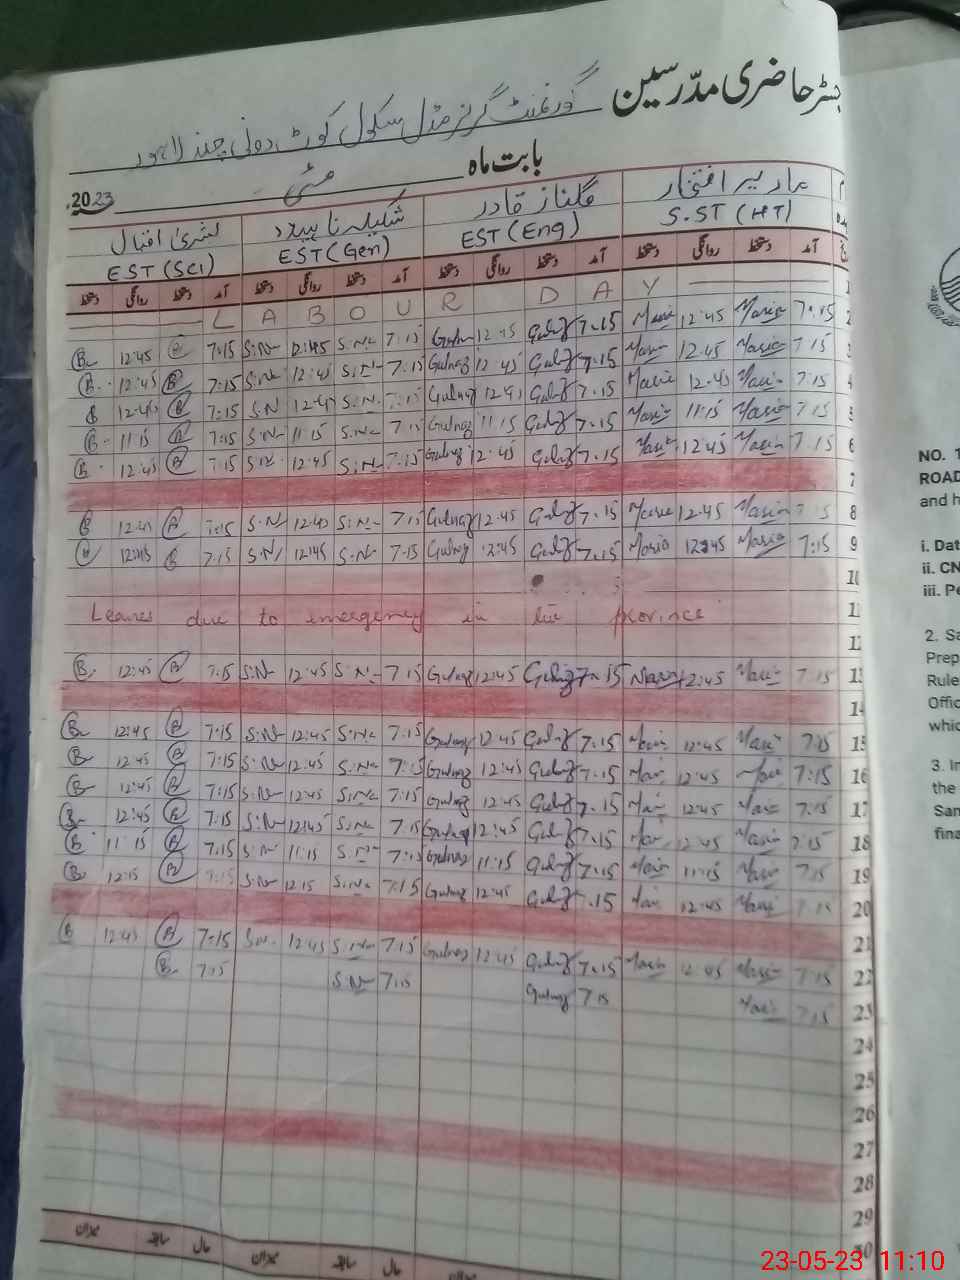 رجسٹر حاضری مدرسین گورنمنٹ گرلز مڈل سکول کورٹ دونی چند لاہور
بابت ماہ مئی 2023
ماریہ افتخار گلناز قادر شکیلہ ناہید بشریٰ اقبال
S.ST (HT) EST (Eng) EST (Gen) EST (Sci)
آمد دستخط روانگی دستخط آمد دستخط روانگی دستخط آمد دستخط روانگی دستخط آمد دستخط روانگی دستخط
1 LABOUR DAY
B. 12:45 B 7:15 S.N 12:45 S.N 7:15 Gulnaz 12:45 Gulnaz 7.15 Maria 12:45 Maria 7:15 2
B. 12:45 B 7:15 S.N 12:45 S.N 7:15 Gulnaz 12:45 Gulnaz 7.15 Maria 12:45 Maria 7:15 3
B 12:45 B 7:15 S.N 12:45 S.N 7:15 Gulnaz 12:45 Gulnaz 7.15 Maria 12:45 Maria 7:15 4
B. 11:15 B 7:15 S.N 11:15 S.N 7:15 Gulnaz 11:15 Gulnaz 7.15 Maria 11:15 Maria 7:15 5
B. 12:45 B 7:15 S.N 12:45 S.N 7:15 Gulnaz 12:45 Gulnaz 7.15 Maria 12:45 Maria 7:15 6
7
B 12:45 B 7:15 S.N 12:45 S.N 7:15 Gulnaz 12:45 Gulnaz 7.15 Maria 12:45 Maria 7:15 8
B 12:45 B 7:15 S.N 12:45 S.N 7:15 Gulnaz 12:45 Gulnaz 7.15 Maria 12:45 Maria 7:15 9
10
Leaves due to emergency in the province 11
12
B. 12:45 B 7:15 S.N 12:45 S.N 7:15 Gulnaz 12:45 Gulnaz 7.15 Maria 12:45 Maria 7:15 13
14
B. 12:45 B 7:15 S.N 12:45 S.N 7:15 Gulnaz 12:45 Gulnaz 7.15 Maria 12:45 Maria 7:15 15
B 12:45 B 7:15 S.N 12:45 S.N 7:15 Gulnaz 12:45 Gulnaz 7.15 Maria 12:45 Maria 7:15 16
B 12:45 B 7:15 S.N 12:45 S.N 7:15 Gulnaz 12:45 Gulnaz 7.15 Maria 12:45 Maria 7:15 17
B 12:45 B 7:15 S.N 12:45 S.N 7:15 Gulnaz 12:45 Gulnaz 7.15 Maria 12:45 Maria 7:15 18
B 11:15 B 7:15 S.N 11:15 S.N 7:15 Gulnaz 11:15 Gulnaz 7.15 Maria 11:15 Maria 7:15 19
B 12:15 B 7:15 S.N 12:15 S.N 7:15 Gulnaz 12:45 Gulnaz 7.15 Maria 12:45 Maria 7:15 20
21
B 12:45 B 7:15 S.N 12:45 S.N 7:15 Gulnaz 12:45 Gulnaz 7.15 Maria 12:45 Maria 7:15 22
B. 7:15 S.N 7:15 Gulnaz 7.15 Maria 7:15 23
24
25
26
27
28
29
30
حال سابقہ میزان حال سابقہ میزان
NO. 1
ROAD
and h
i. Dat
ii. CN
iii. Pe
2. Sa
Prep
Rule
Offic
whic
3. In
the
San
fina
23-05-23 11:10